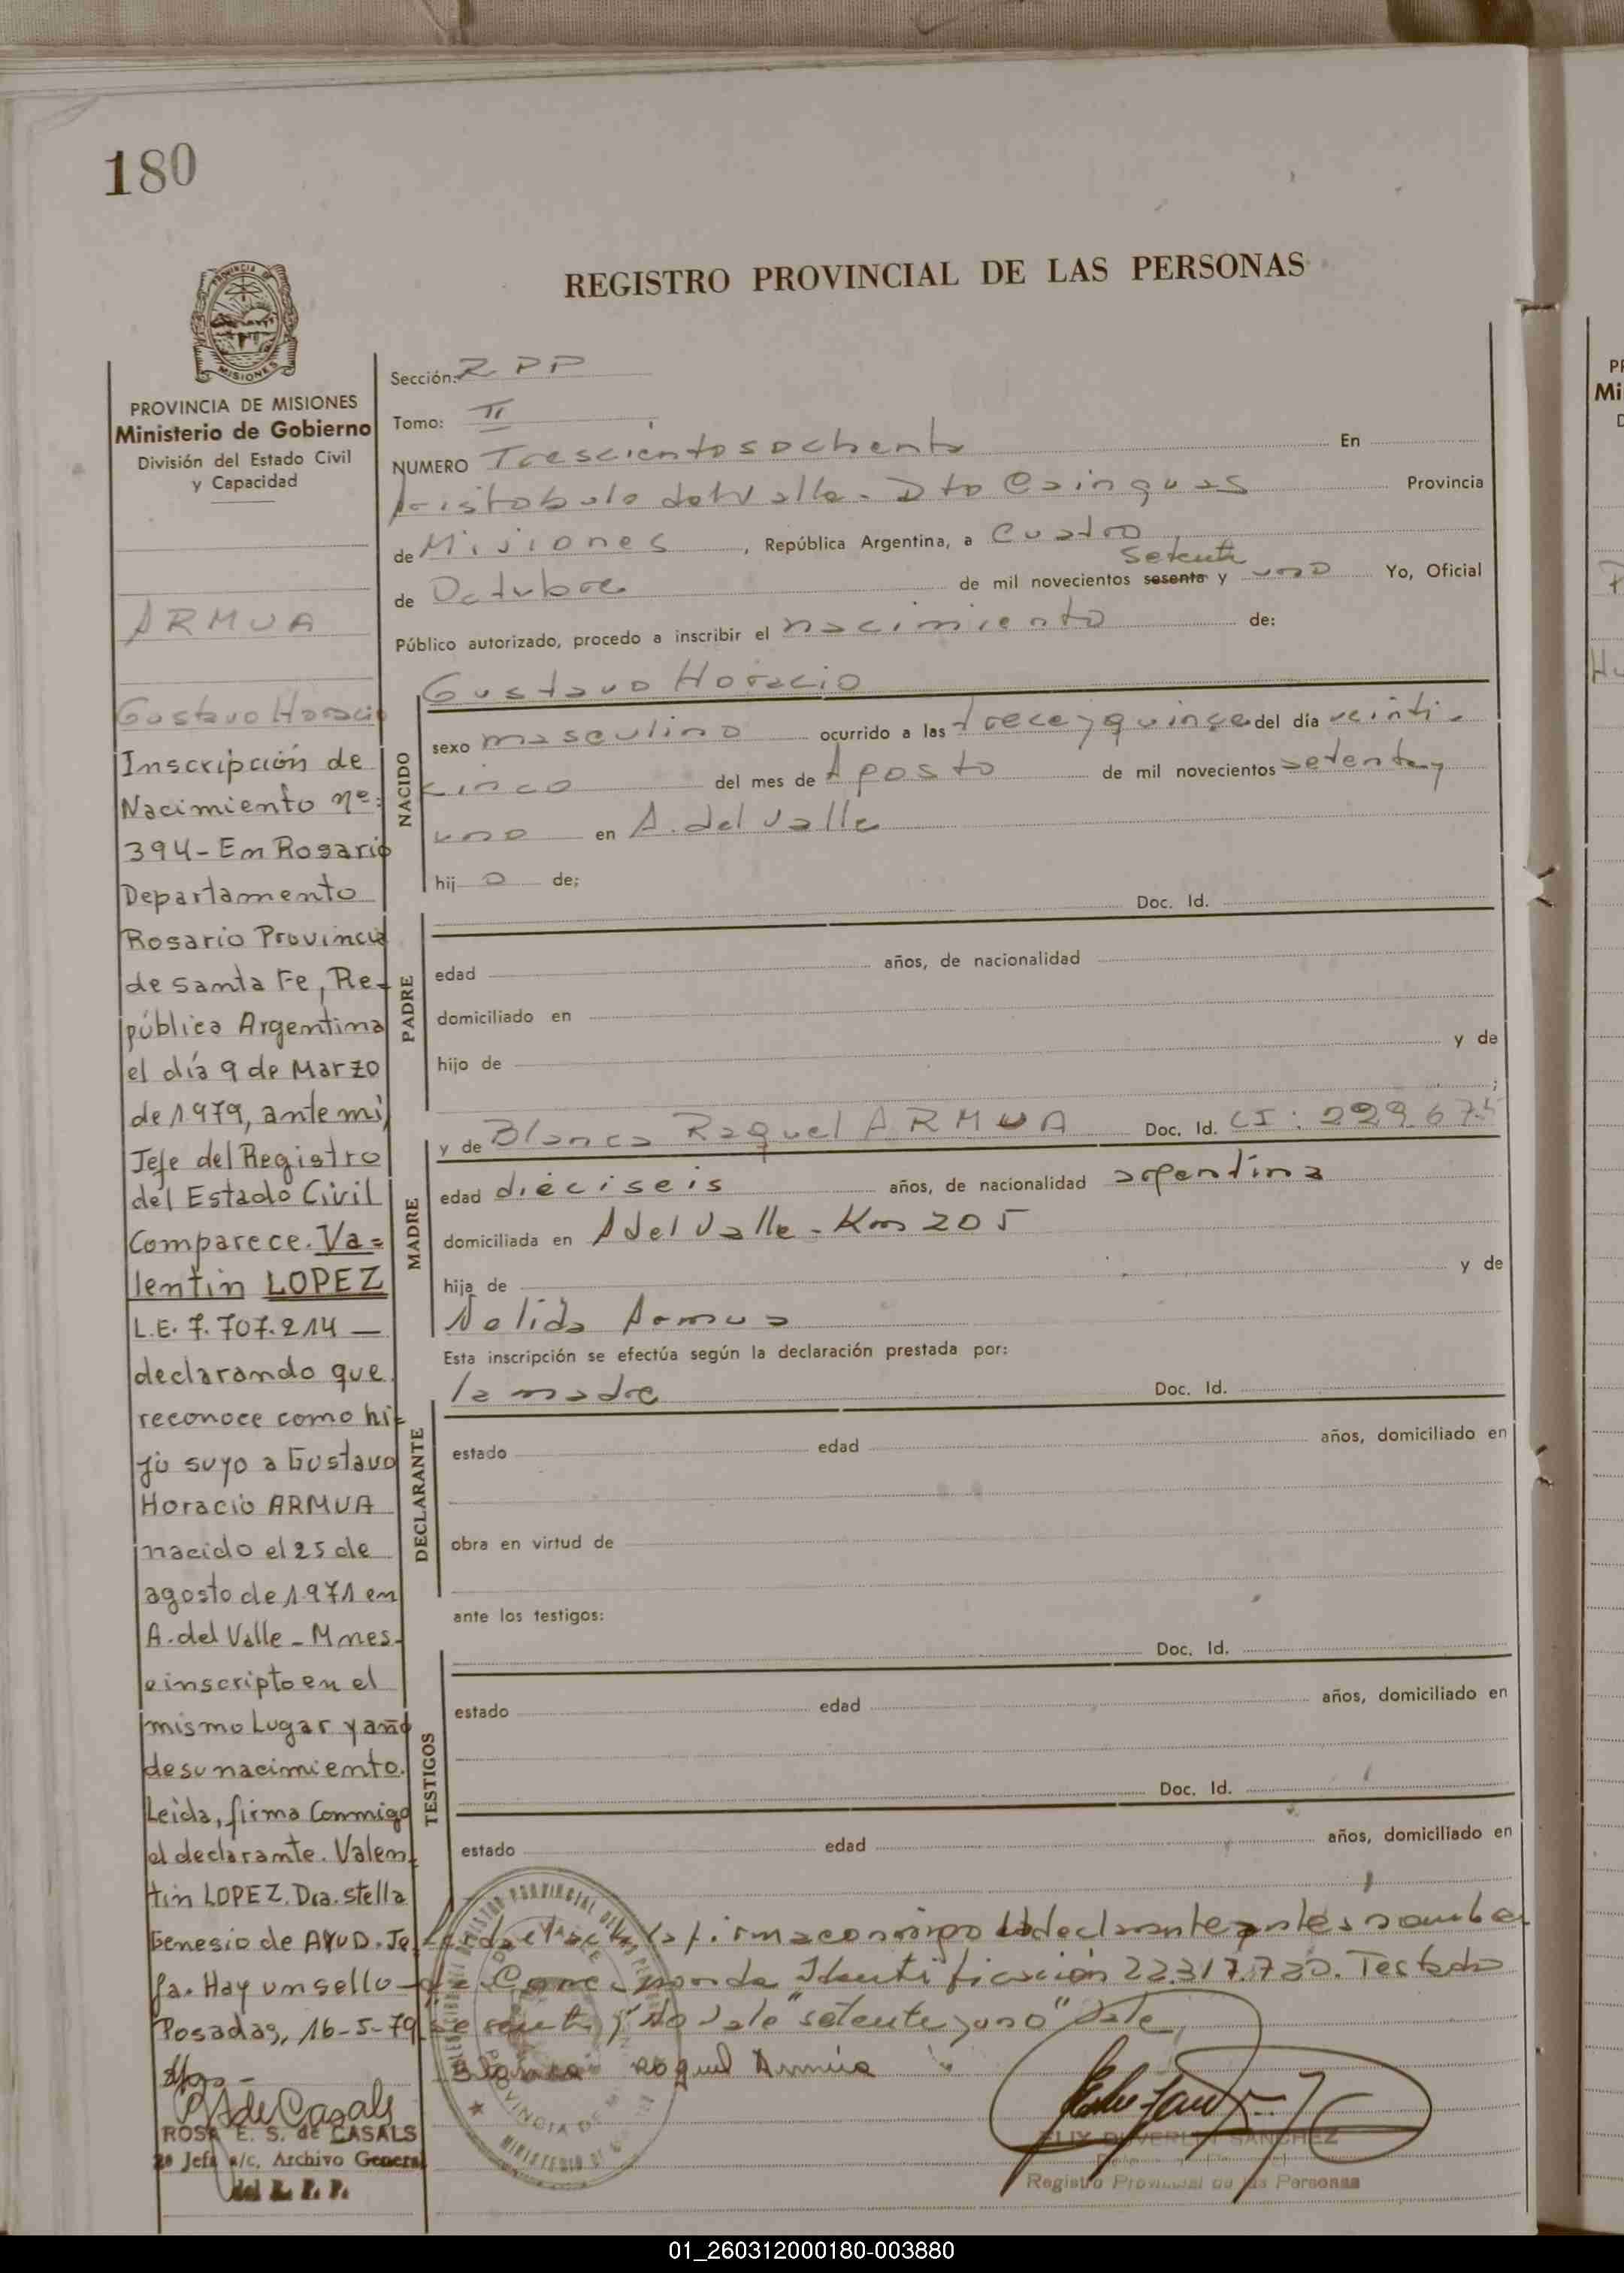 180
REGISTRO PROVINCIAL DE LAS PERSONAS
PROVINCIA DE MISIONES
Ministerio de Gobierno
División del Estado Civil
y Capacidad
ARMUA
Gustavo Horacio
Inscripción de
Nacimiento nº:
394 - En Rosario
Departamento
Rosario Provincia
de Santa Fe, Re-
pública Argentina
el día 9 de Marzo
de 1979, ante mi,
Jefe del Registro
del Estado Civil
Comparece. Va=
lentin LOPEZ
L.E. 7.707.214 —
declarando que
reconoce como hi-
jo suyo a Gustavo
Horacio ARMUA
nacido el 25 de
agosto de 1.971 en
A. del Valle - Mnes.
e inscripto en el
mismo Lugar y año
de su nacimiento.
Leida, firma Conmigo
el declarante. Valen-
tin LOPEZ. Dra. Stella
Genesio de AYUD. Je
fa. Hay un sello -
Posadas, 16-5-79
ROSA E. S. de CASALS
Jefa a/c. Archivo General
del R. P. P.
Sección: R PP
Tomo: II
NUMERO Trescientos ochenta En
Aristobulo del Valle - Dto Cainguas Provincia
de Misiones, República Argentina, a Cuatro
setenta
de Octubre de mil novecientos sesenta y uno Yo, Oficial
Público autorizado, procedo a inscribir el nacimiento de:
Gustavo Horacio
NACIDO
sexo masculino ocurrido a las trece y quince del día veinti-
cinco del mes de Agosto de mil novecientos setenta y
uno en A. del Valle
hij o de;
Doc. Id.
PADRE
edad años, de nacionalidad
domiciliado en
hijo de y de
;
MADRE
y de Blanca Raquel ARMUA Doc. Id. CI: 229.675
edad dieciseis años, de nacionalidad argentina
domiciliada en A del Valle - Km 205
hija de y de
Nelida Armua
Esta inscripción se efectúa según la declaración prestada por:
la madre Doc. Id.
DECLARANTE
estado edad años, domiciliado en
obra en virtud de
ante los testigos:
Doc. Id.
TESTIGOS
estado edad años, domiciliado en
Doc. Id.
estado edad años, domiciliado en
la firma conmigo la declarante antes nombra
Identificación 22.317.720. Testado
No vale "setenta y uno" Vale
Blanca Raquel Armúa
FELIX DUVERLIT SANCHEZ
Registro Provincial de las Personas
01_260312000180-003880